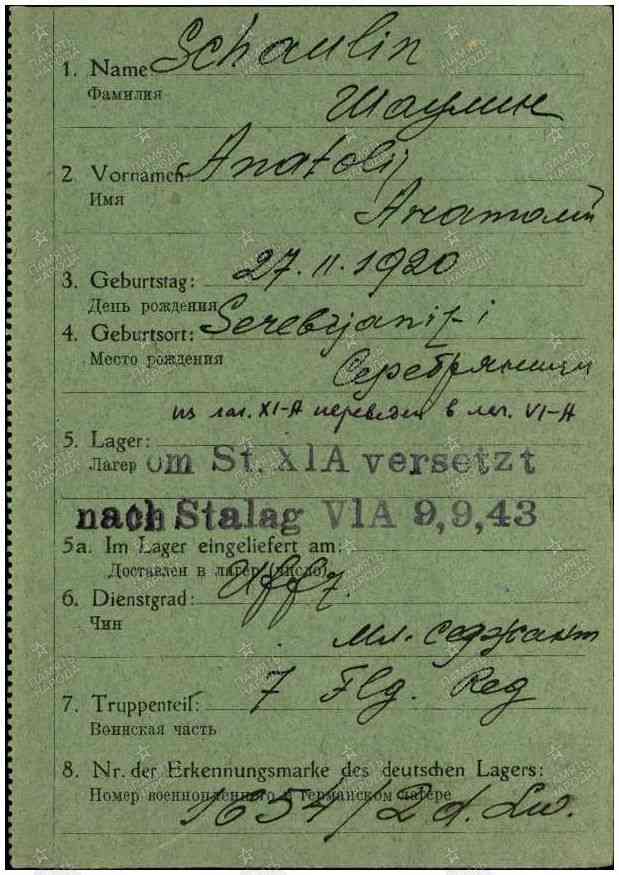 Schaulin
1. Name:
Фамилия
Шаулин
Anatolij
2. Vornamen:
Имя
Анатолий
3. Geburtstag: 27.11.1920
День рождения
4. Geburtsort: Serebrjanizi
Место рождения
Серебряници
из лаг. XI-A переведен в лаг. VI-A
5. Lager:
Лагер om St. XIA versetzt
nach Stalag VIA 9,9,43
5a. Im Lager eingeliefert am:
Доставлен в лагер (число)
6. Dienstgrad: Uffz.
Чин
Мл. седжант
7. Truppenteil: 7 Flg. Reg
Воинская часть
8. Nr. der Erkennungsmarke des deutschen Lagers:
Номер военнопленного в германском лагере
1654/2 d. Lw.